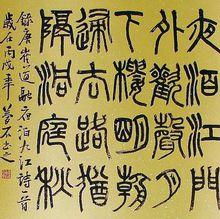 夜泊江門
外歡聲月
下樓明朝
歸去路猶
隔洞庭秋
錄唐崔道融夜泊九江詩一首
歲在丙戌年
石書之